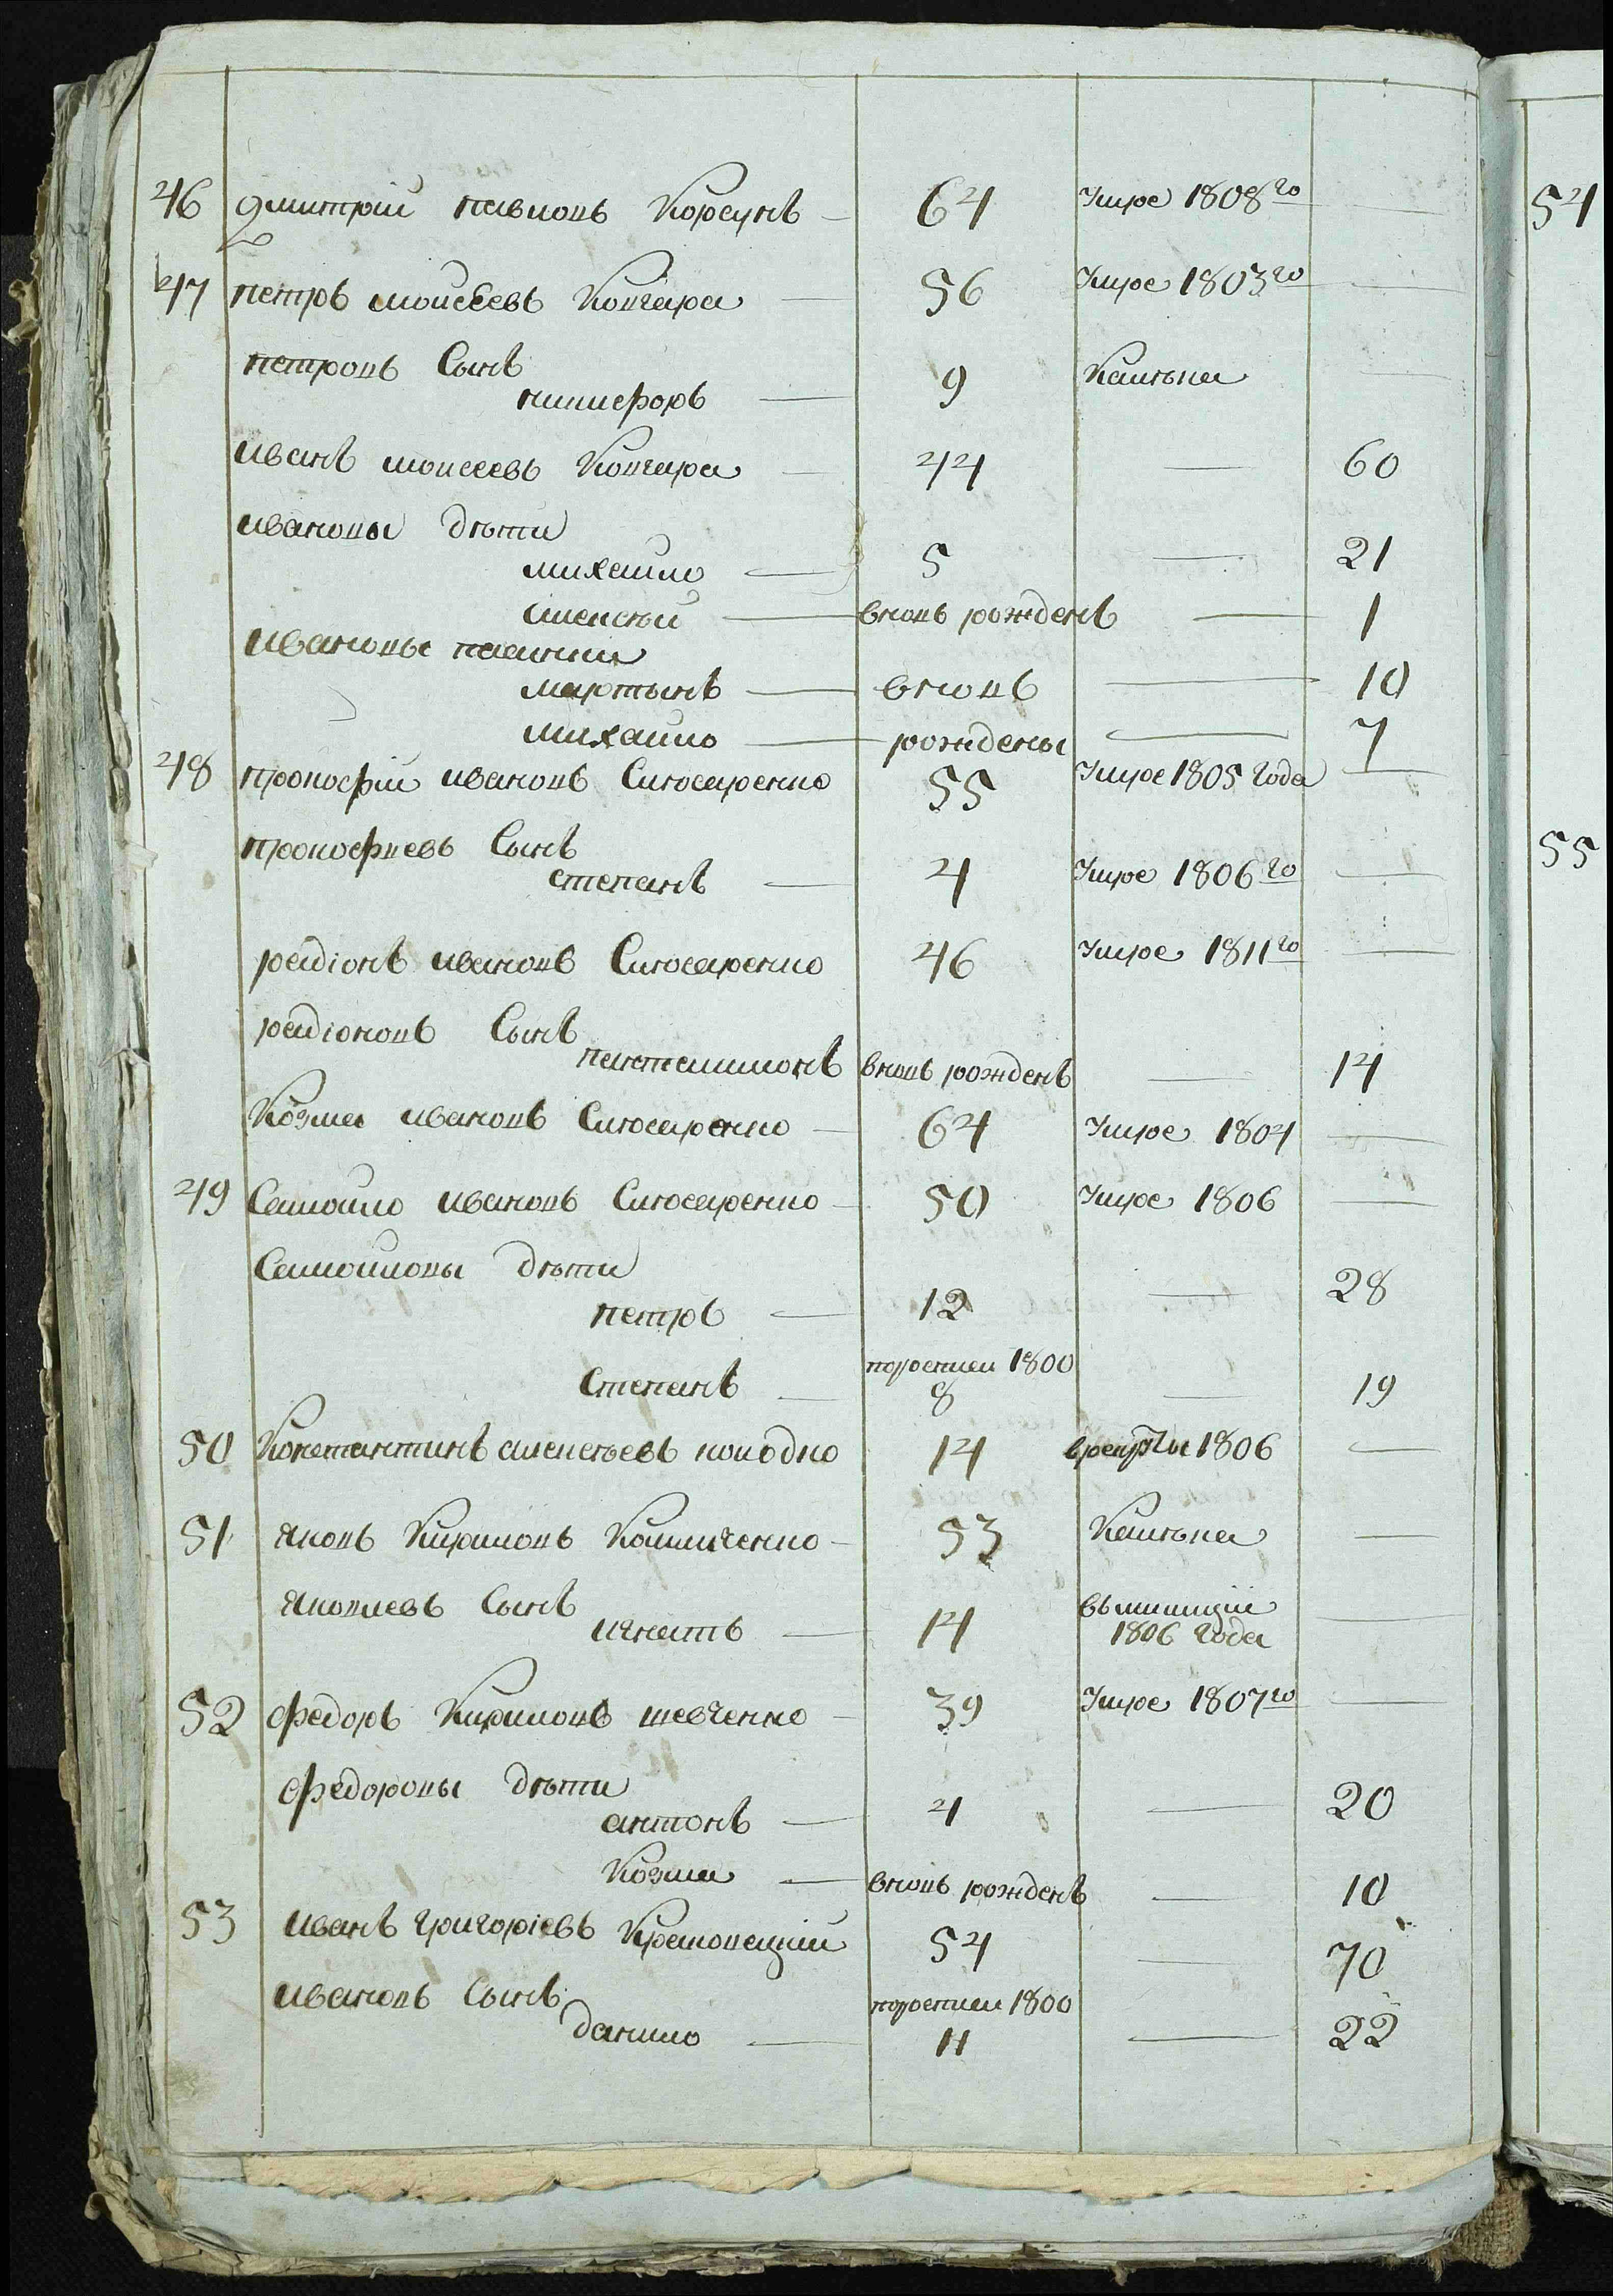 46 Дмитрій Павловъ Корсунъ — 64 Умре 1808го —
47 Петръ Моисеевъ Кочгара — 56 Умре 1803го —
Петровъ Сынъ
Никифоръ — 9 —
Иванъ Моисеевъ Кочгара — 44 — 60
Ивановы дѣти
Михайло — 5 — 21
Алексѣй — вновь рожденъ — 1
Ивановы
Мартынъ — вновь — 10
Михайло — рождены — 7
48 Прокофій Ивановъ Слюсаренко 55 Умре 1805 года —
Прокофиевъ Сынъ
Степанъ — 4 Умре 1806го —
Радіонъ Ивановъ Слюсаренко 46 Умре 1811го —
Радіоновъ Сынъ
Пантелимонъ вновь рожденъ — 14
Козма Ивановъ Слюсаренко — 64 Умре 1804 —
49 Самойло Ивановъ Слюсаренко — 50 Умре 1806 —
Самойловы дѣти
Петръ — 12 — 28
1800
Степанъ — 8 — 19
50 Константинъ Алексѣевъ Колодко 14 врекруты 1806 —
51 Яковъ Кириловъ — 53 —
Яковлевъ Сынъ
Игнатъ — 14 въ милиціи 1806 года —
52 Федоръ Кириловъ Шевченко — 39 Умре 1807го —
Федоровы дѣти
Антонъ — 4 — 20
Козма — вновь рожденъ — 10
53 Иванъ Григоріевъ 54 — 70
Ивановъ Сынъ 1800
Данило — 11 — 22
54
55